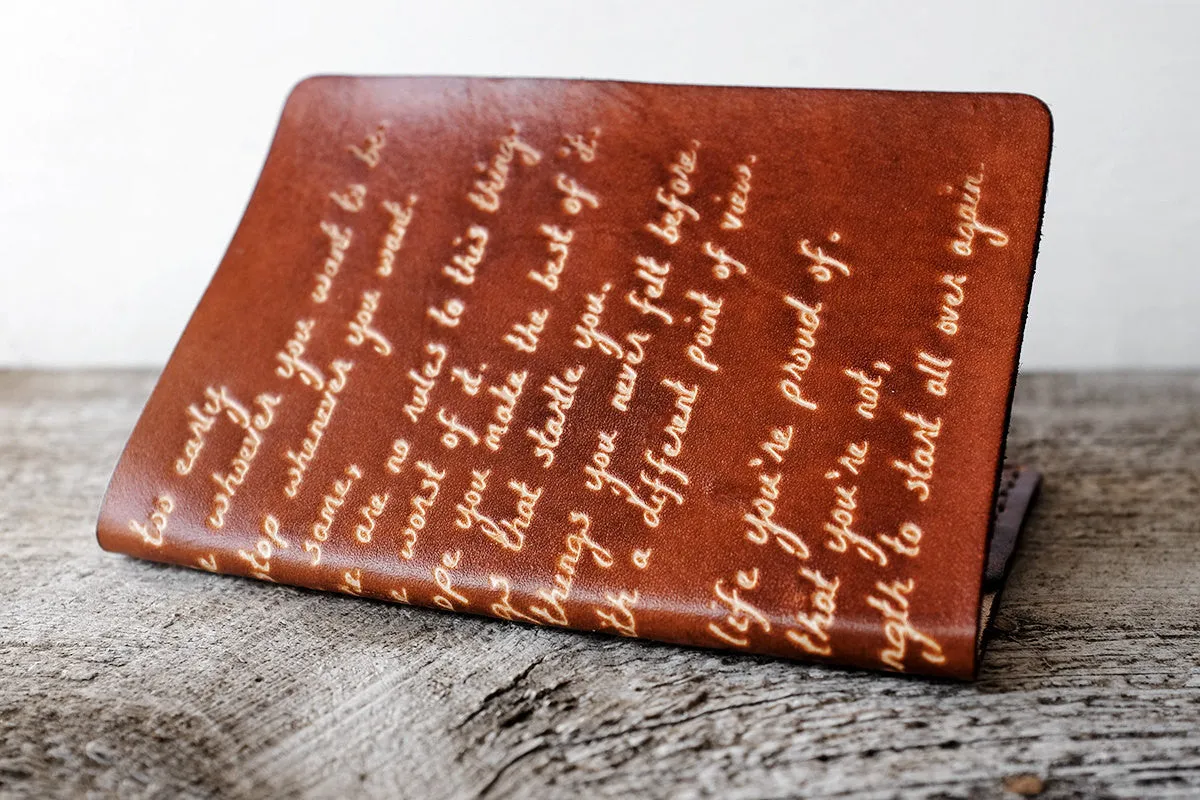 too early
e whoever you want to be.
top whenever you want.
same,
re are no rules to this thing.
e worst of it.
ope you make the best of it.
gs that startle you.
things you never felt before.
th a different point of view.
life you're proud of.
that you're not,
ngth to start all over again.